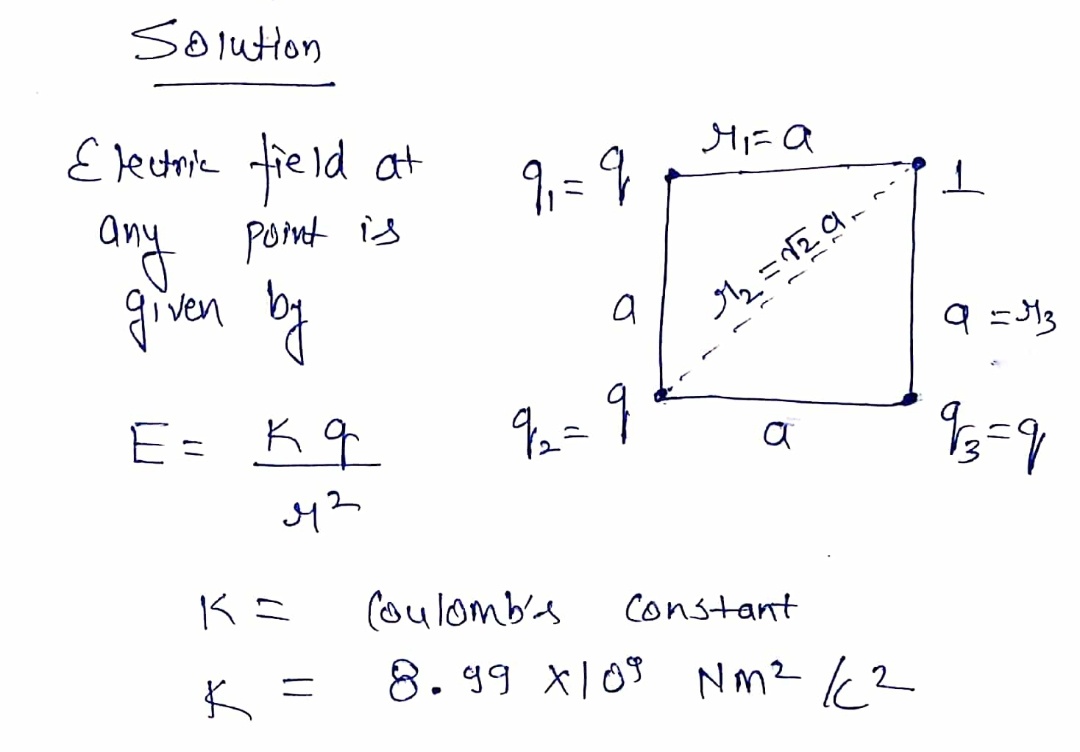 Solution
Electric field at
any point is
given by
E = Kq
r²
q₁ = q
r₁ = a
1
a
r₂ = √2 a
a = r₃
q₂ = q
a
q₃ = q
K = Coulomb's constant
K = 8.99 × 10⁹ Nm² /c²